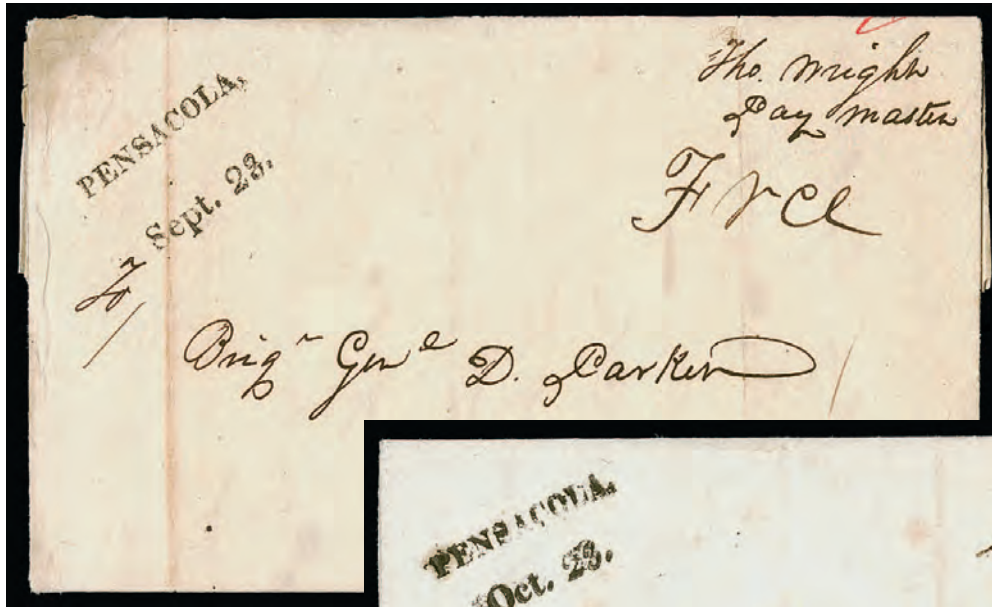 PENSACOLA,
Sept. 23.
Tho. Wright
Pay master
Free
To
Brigr Genl D. Parker
PENSACOLA.
Oct. 23.